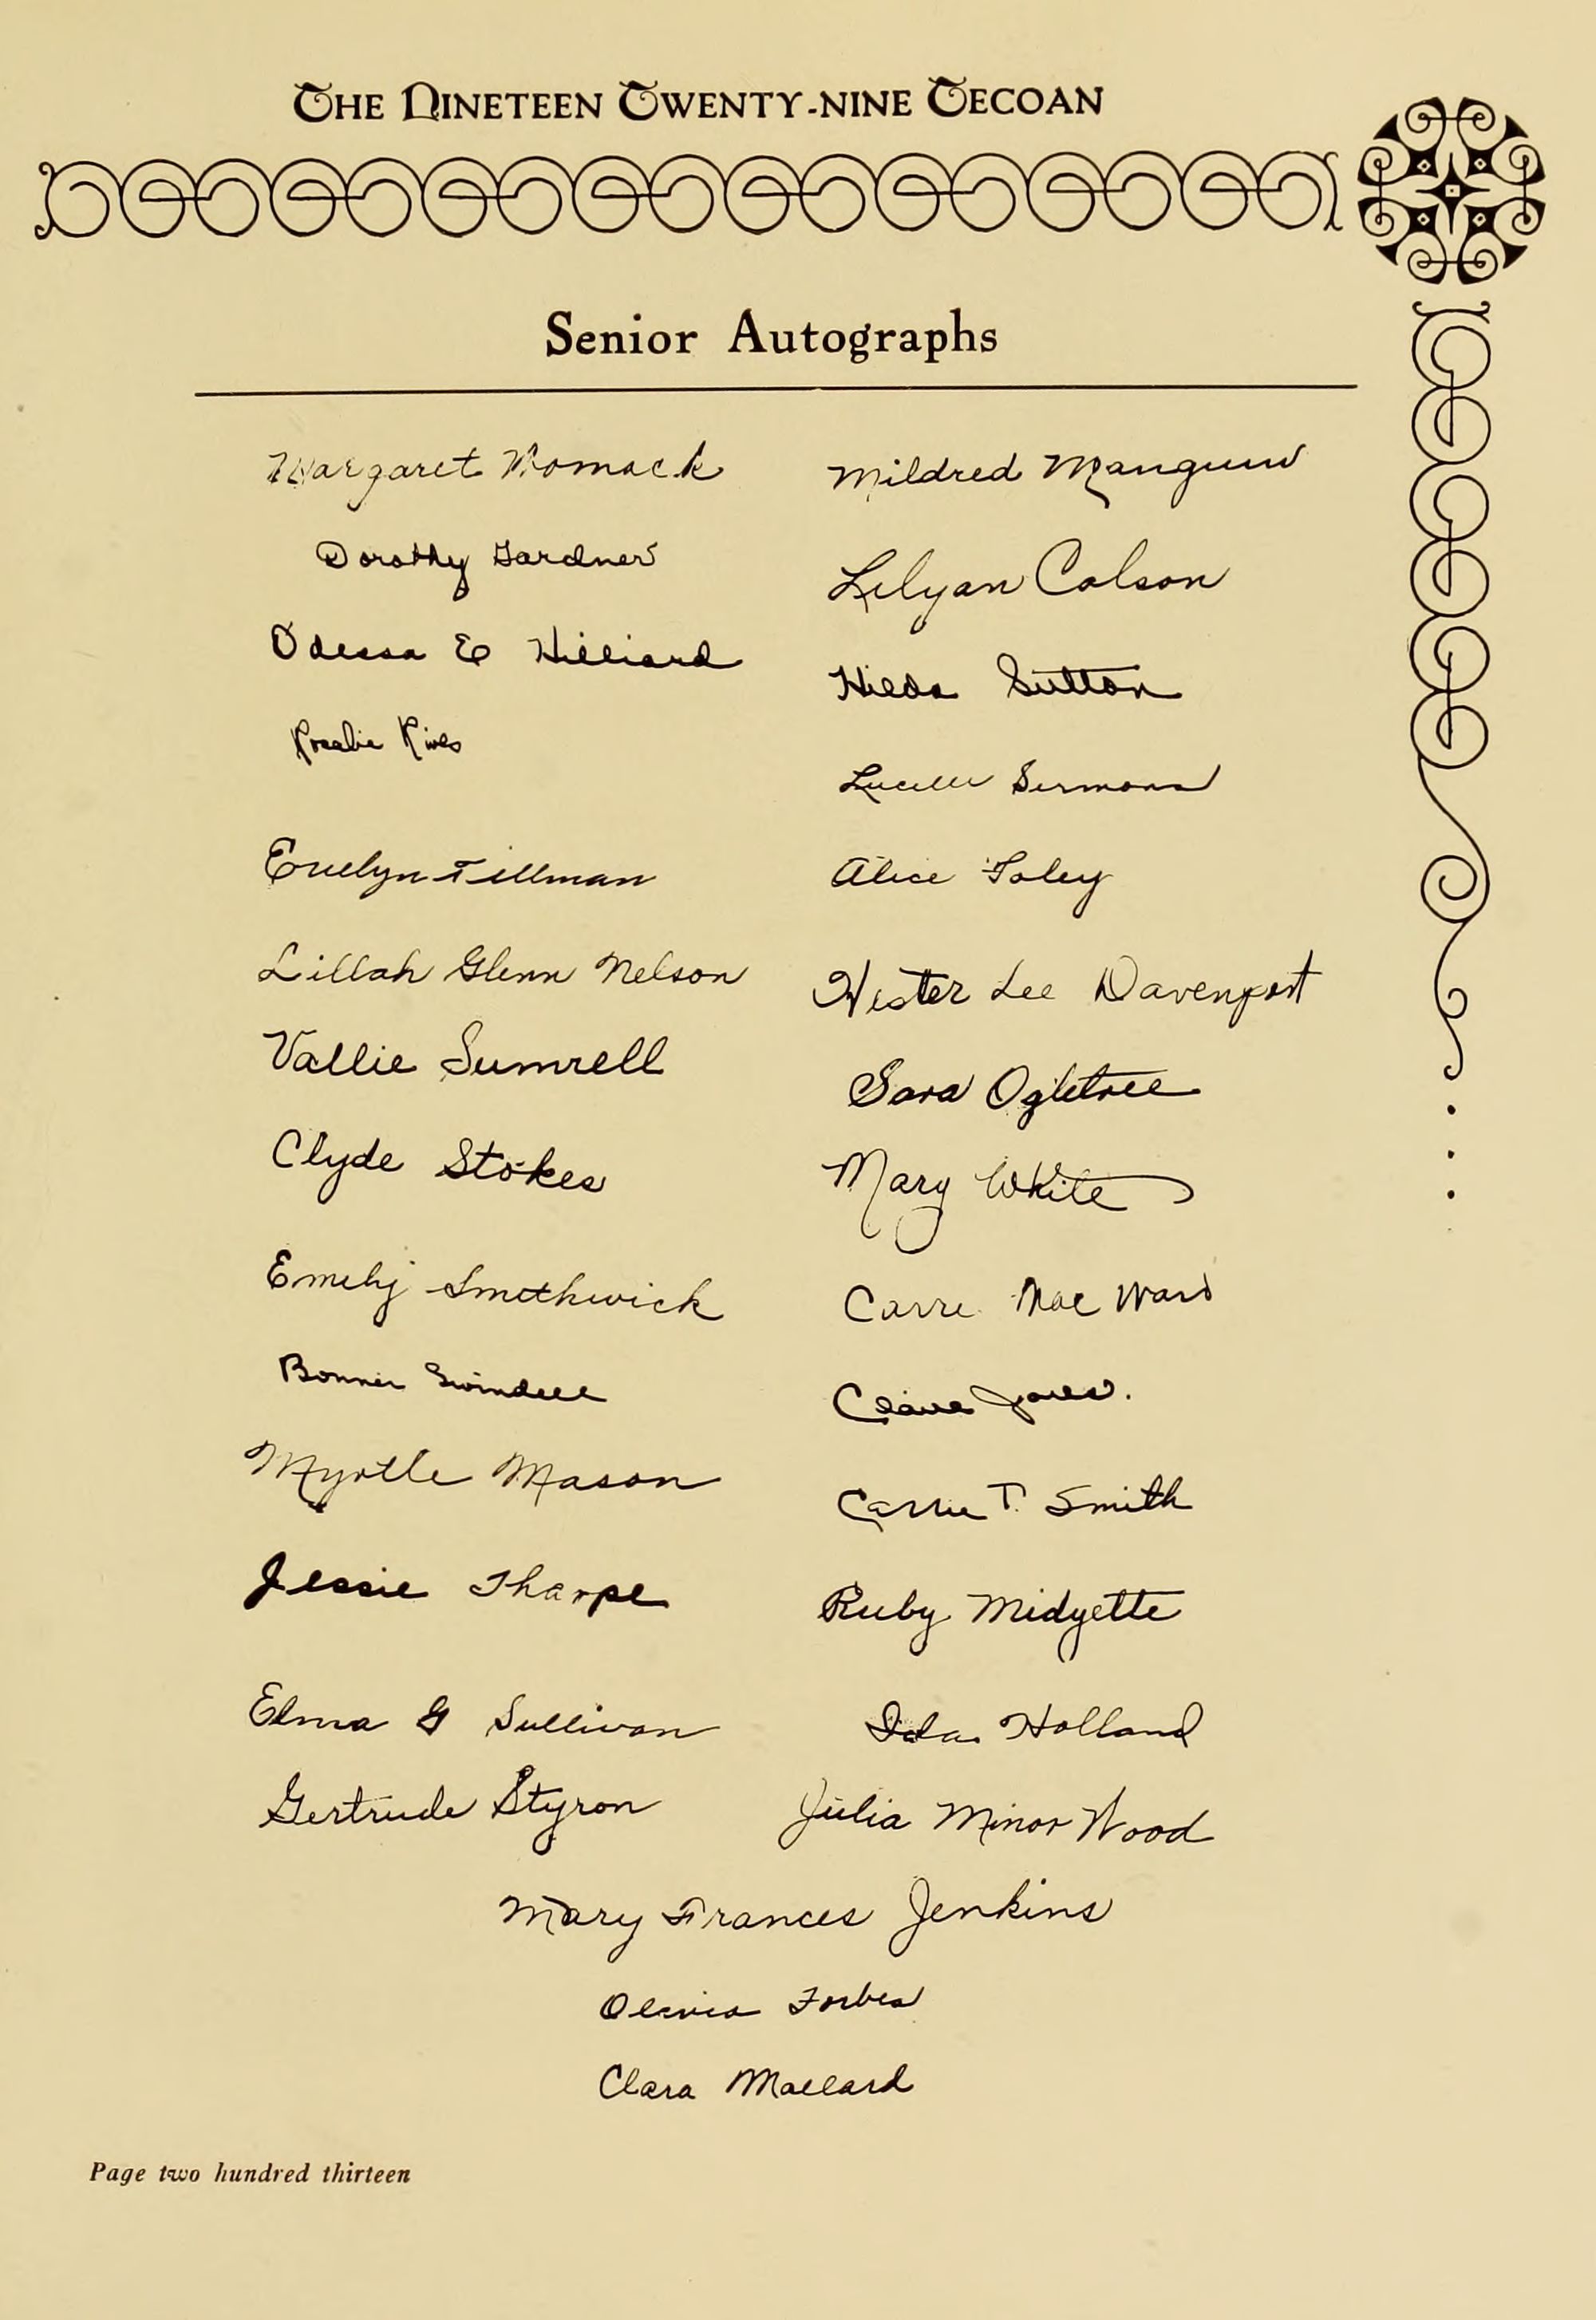 THE NINETEEN TWENTY-NINE TECOAN
Senior Autographs
Margaret Womack
Dorothy Gardner
Odessa E Hilliard
Rosalie Rives
Evelyn Tillman
Lillah Glenn Nelson
Vallie Sumrell
Clyde Stokes
Emily Smithwick
Bonner Swindell
Myrtle Mason
Jessie Tharpe
Elma G Sullivan
Gertrude Styron
Mildred Mangum
Lilyan Colson
Hilda Sutton
Lucille Sermons
Alice Foley
Hester Lee Davenport
Sara Ogletree
Mary White
Carre Mae Ward
Claire Jones.
Carrie T. Smith
Ruby Midyette
Ida Holland
Julia Minor Wood
Mary Frances Jenkins
Olivia Forbes
Clara Mallard
Page two hundred thirteen